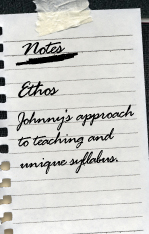 Notes
Ethos
Johnny's approach
to teaching and
unique syllabus.